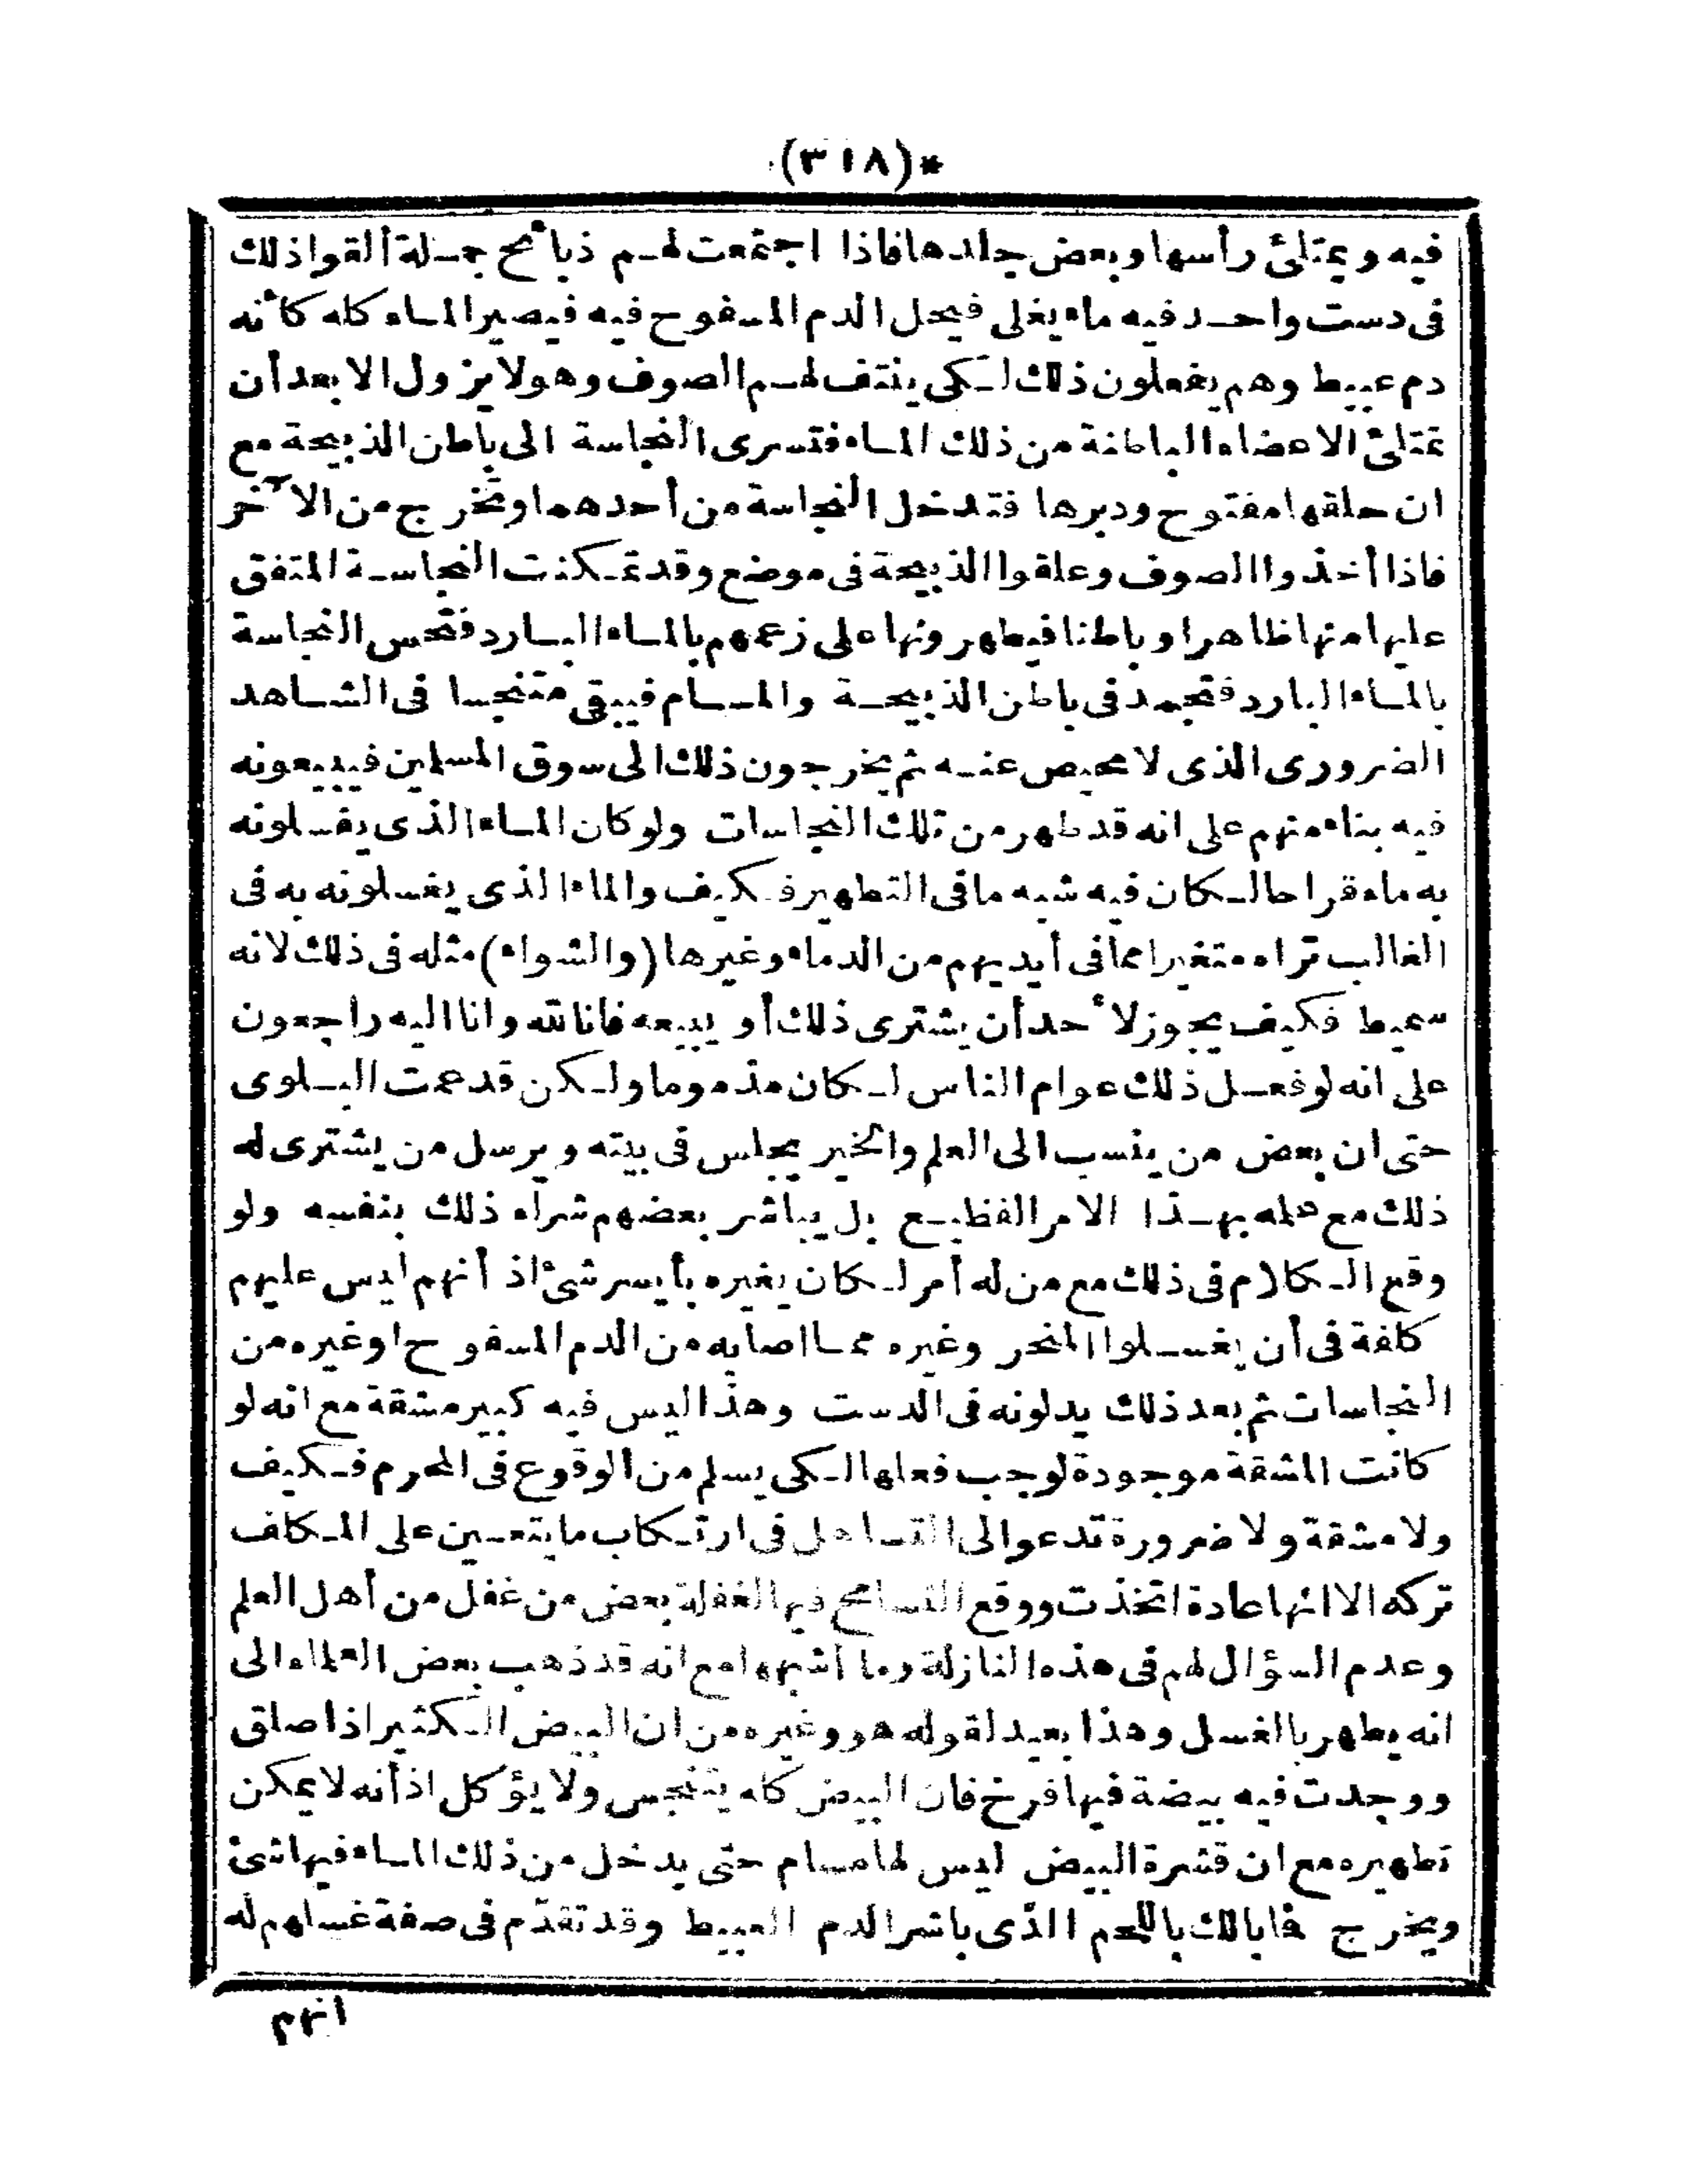 *(٣١٨)
فيه ويمتلئ رأسها وبعض جلدها فاذا اجتمعت لهم ذبائح جملة ألقوا ذلك
فى دست واحد فيه ماء يغلى فيحل الدم المسفوح فيه فيصير الماء كله كأنه
دم عبيط وهم يفعلون ذلك لكى ينتف لهم الصوف وهو لا يزول الا بعد أن
تمتلئ الاعضاء الباطنة من ذلك الماء فتسرى النجاسة الى باطن الذبيحة مع
ان حلقها مفتوح ودبرها فتدخل النجاسة من أحدهما وتخرج من الآخر
فاذا أخذوا الصوف وعلقوا الذبيحة فى موضع وقد تمكنت النجاسة المتفق
عليها منها ظاهرا وباطنا فيطهرونها على زعمهم بالماء البارد فتحس النجاسة
بالماء البارد فتجمد فى باطن الذبيحة والمسام فيبقى متنجسا فى الشاهد
الضرورى الذى لا محيص عنه ثم يخرجون ذلك الى سوق المسلمين فيبيعونه
فيه بناء منهم على انه قد طهر من تلك النجاسات ولو كان الماء الذى يغسلونه
به ماء قراحا لكان فيه شبه ما فى التطهير فكيف والماء الذى يغسلونه به فى
الغالب تراه متغيرا مما فى أيديهم من الدماء وغيرها (والشواء) مثله فى ذلك لانه
سميط فكيف يجوز لأحد أن يشترى ذلك أو يبيعه فانا لله وانا اليه راجعون
على انه لو فعل ذلك عوام الناس لكان مذموما ولكن قد عمت البلوى
حتى ان بعض من ينسب الى العلم والخير يجلس فى بيته ويرسل من يشترى له
ذلك مع علمه بهذا الامر الفظيع بل يباشر بعضهم شراء ذلك بنفسه ولو
وقع الكلام فى ذلك مع من له أمر لكان يغيره بأيسر شئ اذ أنهم ليس عليهم
كلفة فى أن يغسلوا المنحر وغيره مما اصابه من الدم المسفوح او غيره من
النجاسات ثم بعد ذلك يدلونه فى الدست وهذا ليس فيه كبير مشقة مع انه لو
كانت المشقة موجودة لوجب فعلها لكى يسلم من الوقوع فى المحرم فكيف
ولا مشقة ولا ضرورة تدعو الى التساهل فى ارتكاب ما يتعين على المكلف
تركه الا انها عادة اتخذت ووقع التسامح فيها لغفلة بعض من غفل من أهل العلم
وعدم السؤال لهم فى هذه النازلة وما أشبهها مع انه قد ذهب بعض العلماء الى
انه يطهر بالغسل وهذا بعيد لقوله هو وغيره من ان البيض الكثير اذا صلق
ووجدت فيه بيضة فيها فرخ فان البيض كله يتنجس ولا يؤكل اذ أنه لا يمكن
تطهيره مع ان قشرة البيض ليس لها مسام حتى يدخل من ذلك الماء فيها شئ
ويخرج فما بالك باللحم الذى باشر الدم العبيط وقد تقدّم فى صفة غسلهم له
انهم